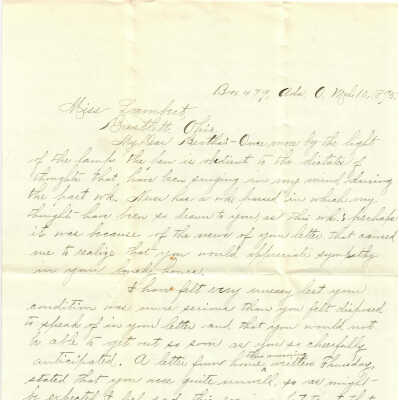 Box 479, Ada, O. Feb 10, 1895.
Miss Lambert
Bartlett, Ohio.
My Dear Bertha:- Once more by the light
of the lamp the pen is obedient to the dictate of
thoughts that have been surging in my mind during
the past wk. Never has a wk passed in which my
thoughts have been so drawn to you as this wk. & perhaps
it was because of the news of your letter that caused
me to realize that you would appreciate sympathy
in your lonely hours.
I have felt very uneasy lest your
condition was more serious than you felt disposed
to speak of in your letter and that you would not
be able to get out so soon as you so cheerfully
anticipated. A letter from home this morning written Thursday,
stated that you were quite unwell, so as might
be expected I